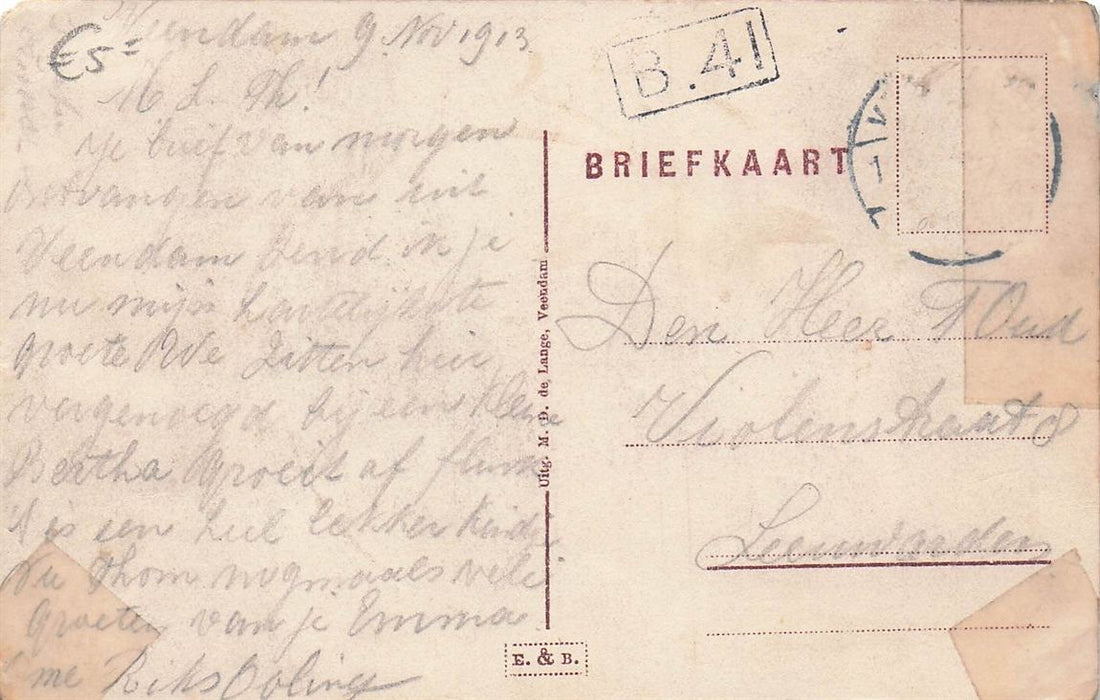 €5=
Veendam 9 Nov 1913
M L. Th!
Je brief van morgen
ontvangen van uit
Veendam zend ik je
nu mijn hartelijkste
groete zitten hier
vergenoegd bij een kleine
Bertha groeit af
't is een heel lekker kindje
Nu Thom nogmaals vele
groeten van je Emma
me
B.41
BRIEFKAART
Den Heer T Oud
Violenstraat 8
Leeuwarden
Uitg. M. D. de Lange, Veendam
E. & B.